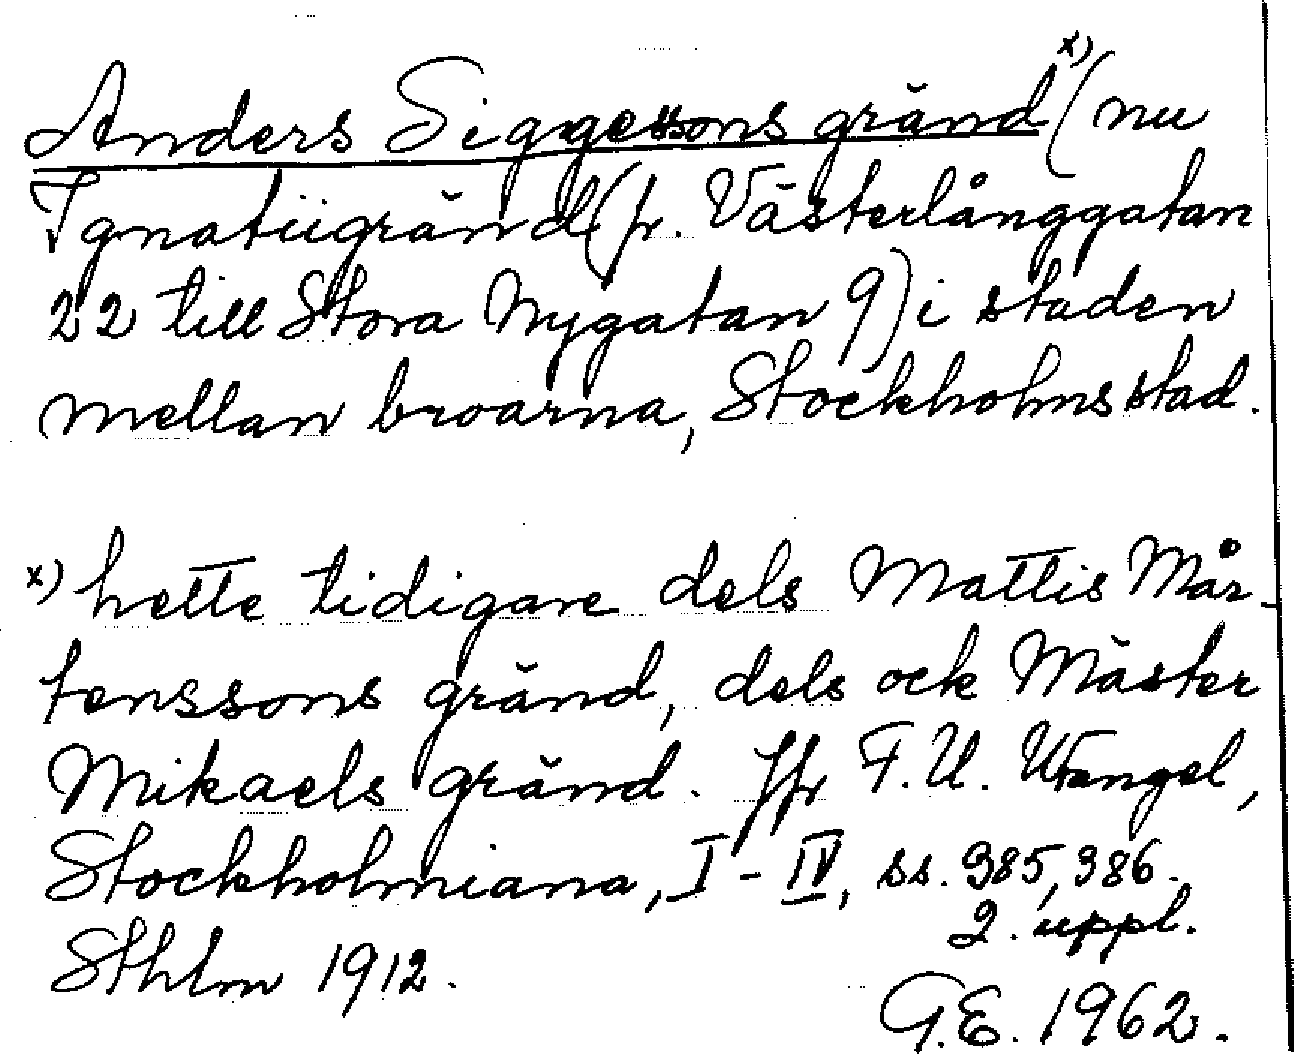 Anders Siggessons gränd x) (nu
Ignatiigränd (fr. Västerlånggatan
22 till Stora Nygatan 9) i staden
mellan broarna, Stockholms stad.
x) hette tidigare dels Mattis Mår-
tenssons gränd, dels ock Mäster
Mikaels gränd. Jfr F.U. Wrangel,
Stockholmiana, I - IV, ss. 385, 386.
2. uppl.
Sthlm 1912.
G.E. 1962.